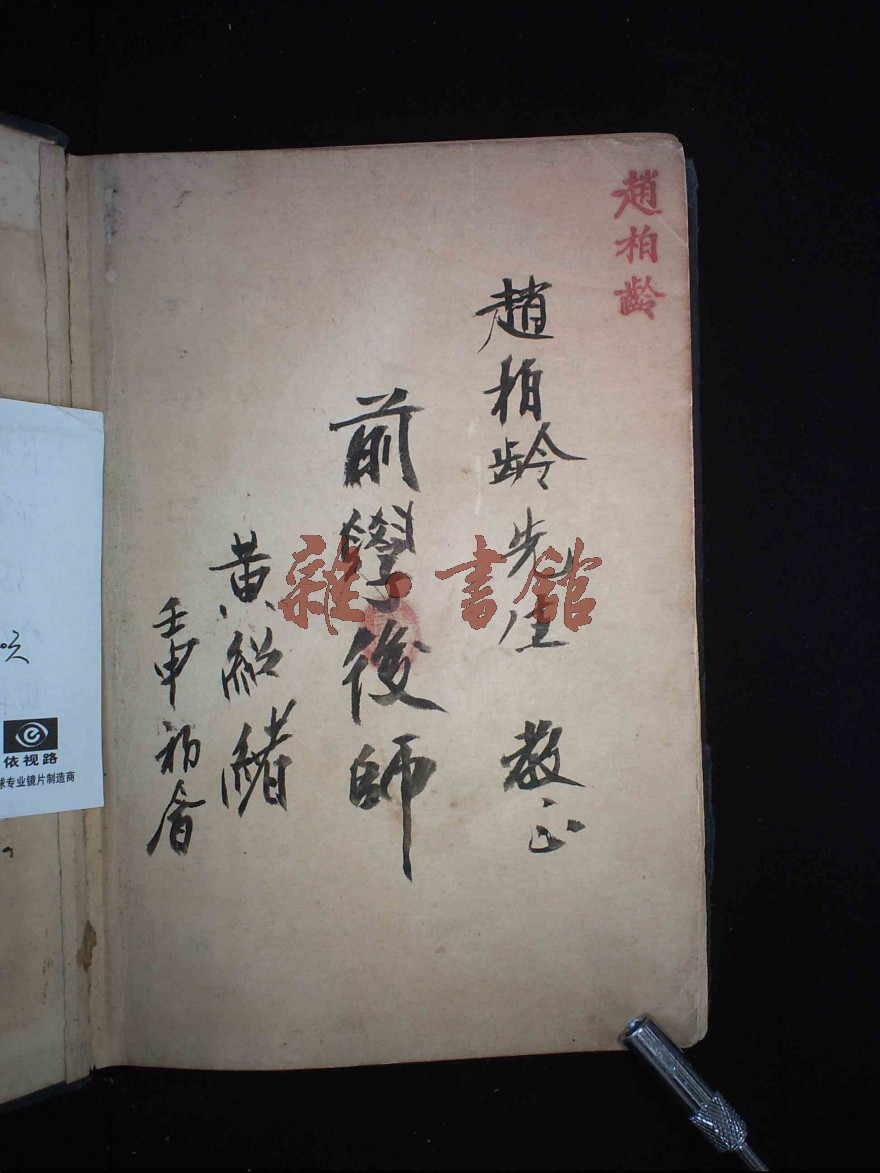 趙柏齡
趙柏龄先生 教正
前學後師
黄紹緒
壬申初
雜·書館
依视路
球专业镜片制造商